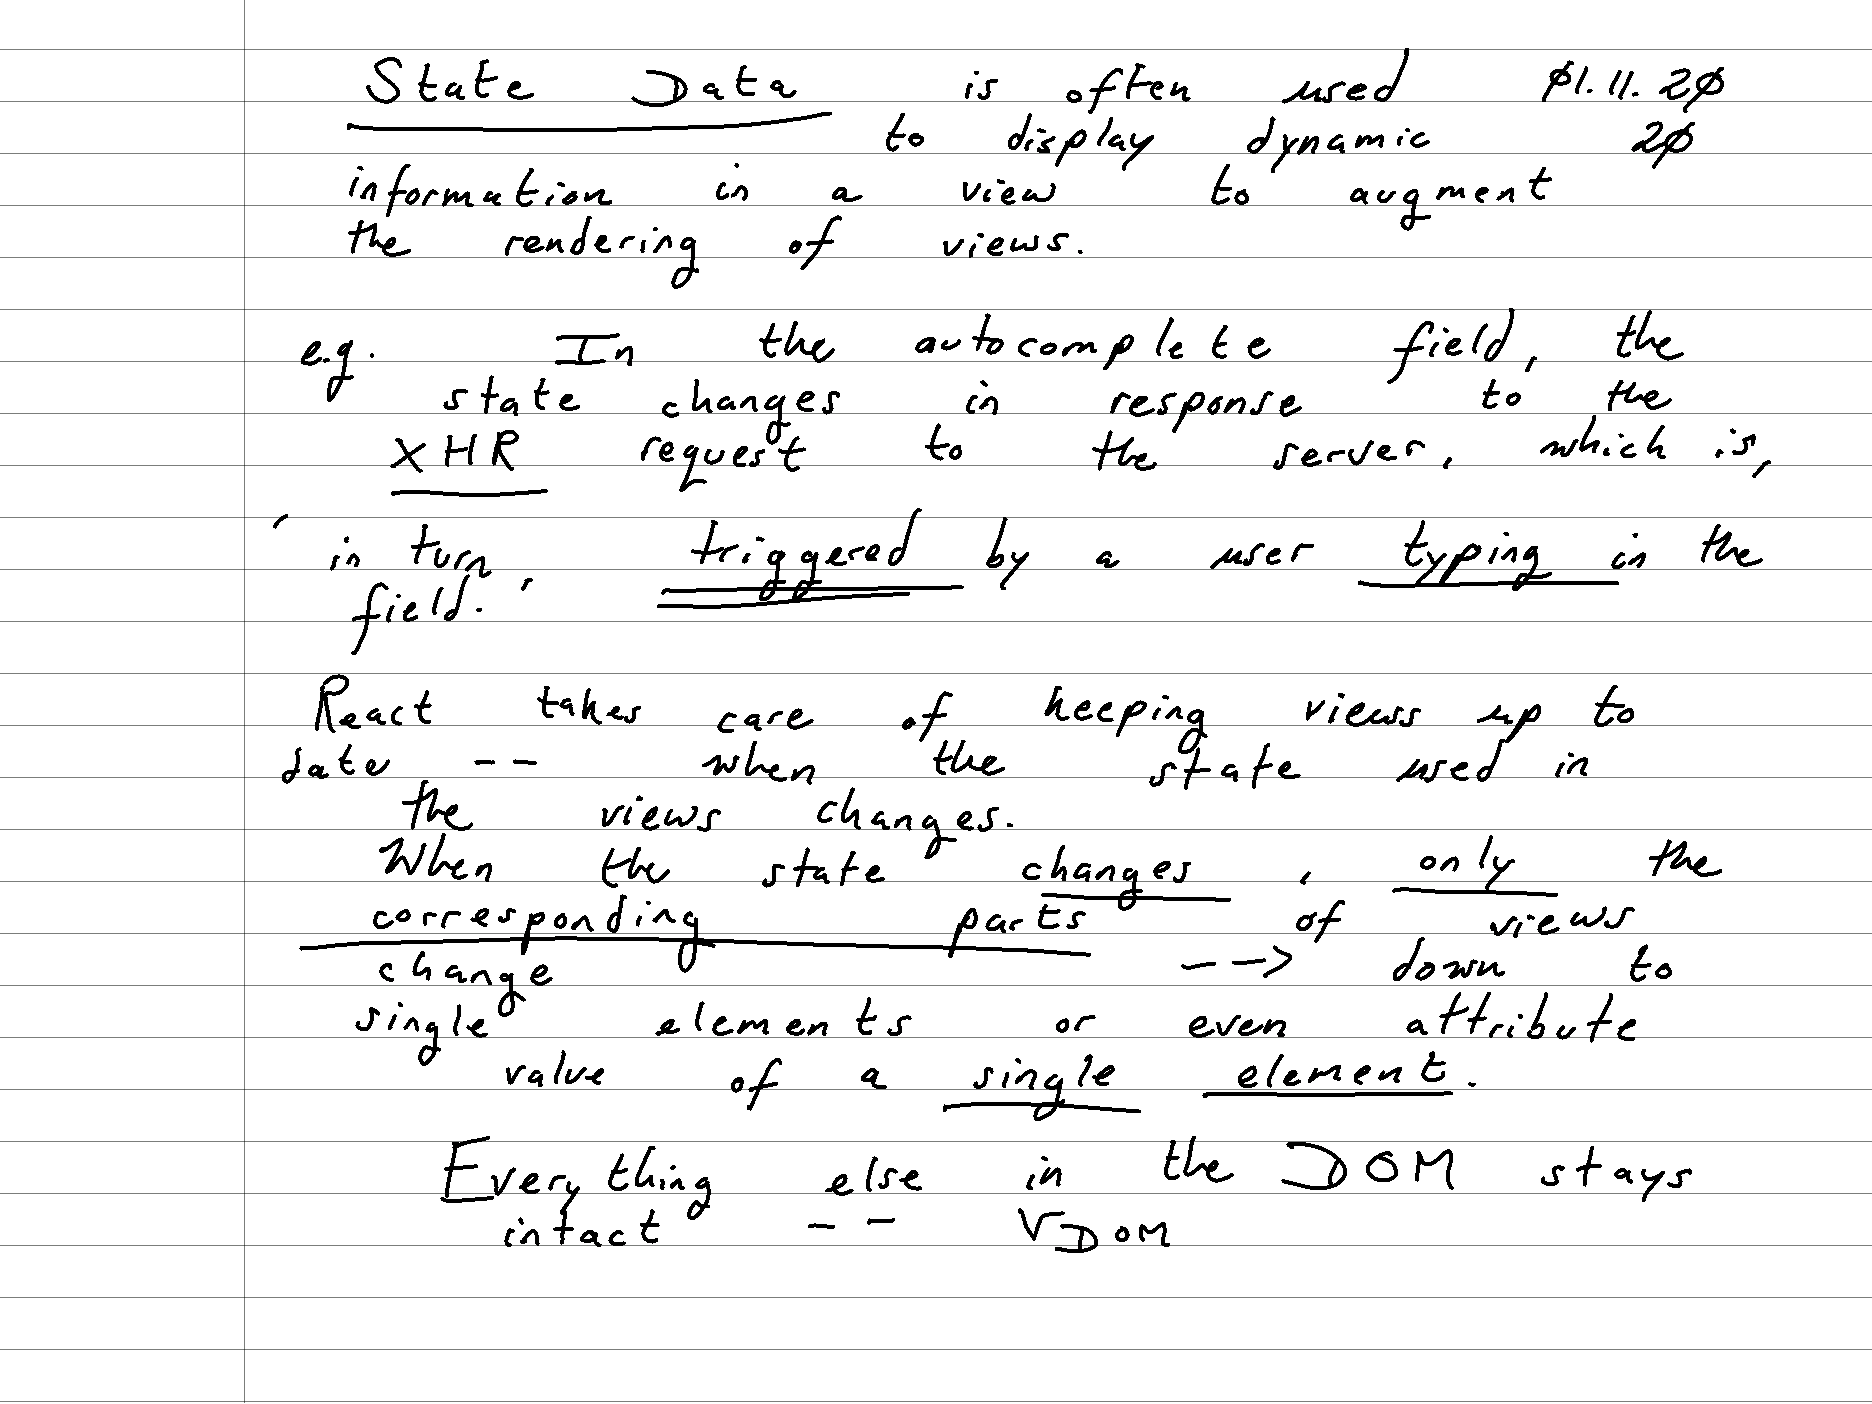 State Data is often used Ø1.11.2Ø
to display dynamic 2Ø
information in a view to augment
the rendering of views.
e.g. In the autocomplete field, the
state changes in response to the
XHR request to the server, which is,
' in turn, triggered by a user typing in the
field.'
React takes care of keeping views up to
date -- when the state used in
the views changes.
When the state changes, only the
corresponding parts of views
change --> down to
single elements or even attribute
value of a single element.
Everything else in the DOM stays
intact -- VDOM